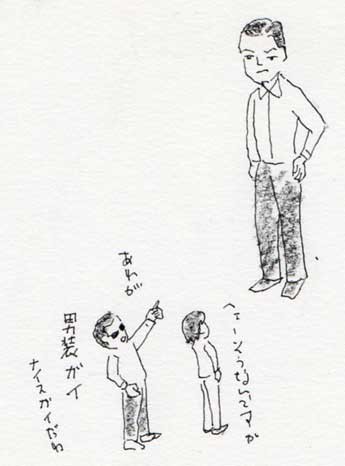 あれが
男装ガイ
ナイスガイだわ
へェーそうなんですか